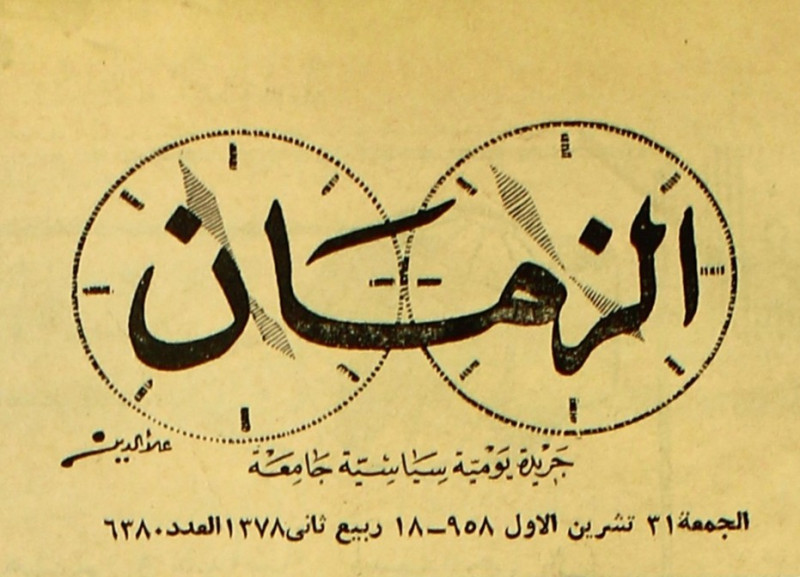 الزمان
علاءالدين
جريدة يومية سياسية جامعة
الجمعة ٣١ تشرين الاول ٩٥٨ــ١٨ ربيع ثانى ١٣٧٨ العدد ٦٣٨٠